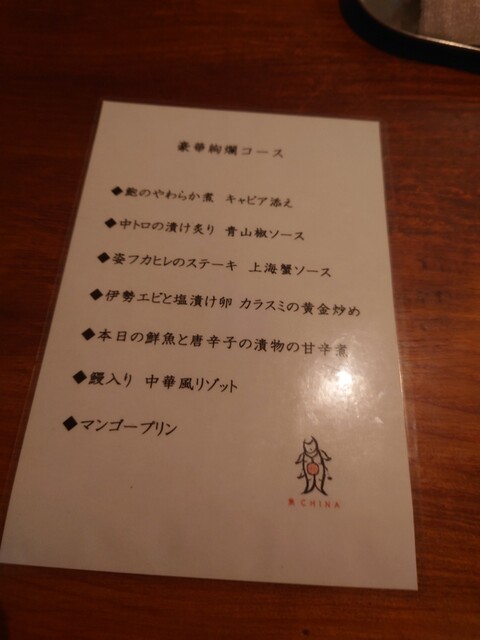 豪華絢爛コース
◆鮑のやわらか煮 キャビア添え
◆中トロの漬け炙り 青山椒ソース
◆姿フカヒレのステーキ 上海蟹ソース
◆伊勢エビと塩漬け卵 カラスミの黄金炒め
◆本日の鮮魚と唐辛子の漬物の甘辛煮
◆鰻入り 中華風リゾット
◆マンゴープリン
魚 CHINA